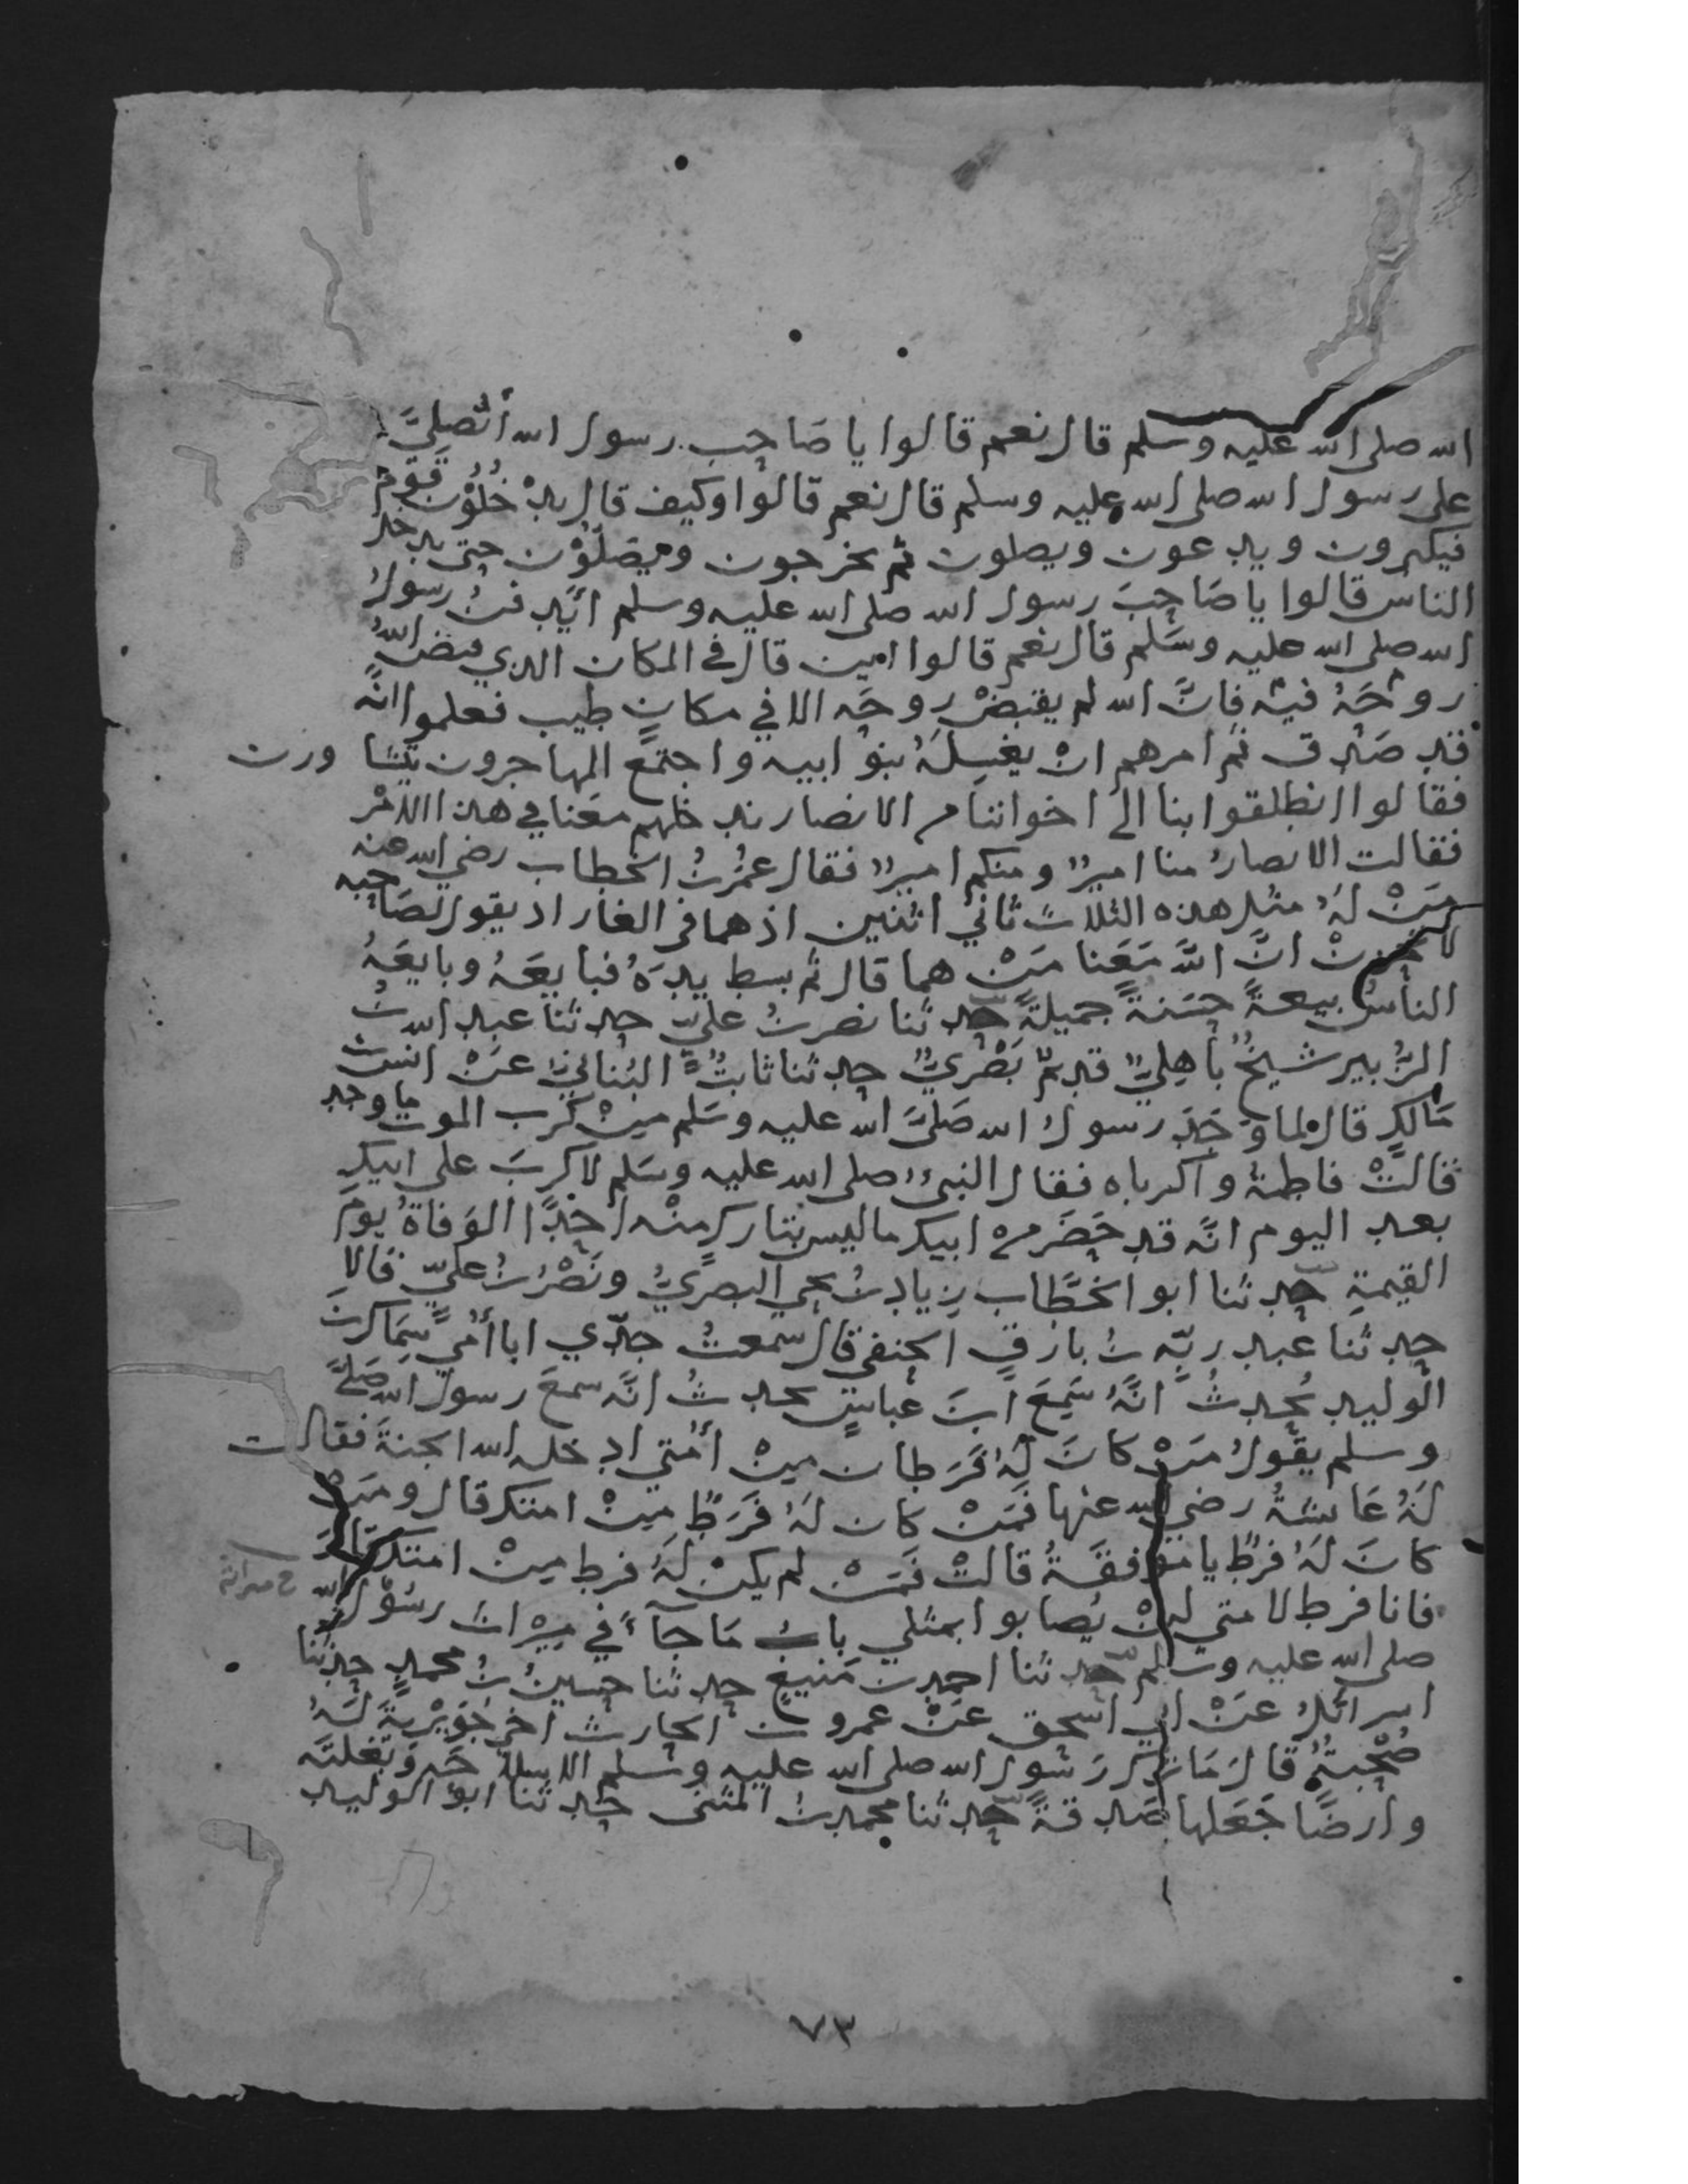 الله صلى الله عليه وسلم قال نعم قالوا يا صَاحِبَ رسول الله أتُصلِيَّ
على رسول الله صلى الله عليه وسلم قال نعم قالوا وكيف قال يدْخُلُوْن قَوْم
فيكبرون ويدعون ويصلون ثم يخرجون ويصَلّوْن حتى يدخل
الناسُ قالوا يا صَاحِبَ رسول الله صلى الله عليه وسلم ايُدفنُ رسولُ
الله صلى الله عليه وسَلم قال نعم قالوا اين قال في المكان الذي قبض اللهُ
روْحَهُ فيه فانَّ الله لم يقبضْ روحَه الا في مكانٍ طيب فعلموا انَّه
قد صَدق ثم امرهم انْ يغسِلَهُ بنوْ ابيه واجتمَع المهاجرون يتشاورن
فقالوا انطلقوا بنا الىَ اخواننا من الانصار ندخلهم معَنا في هذا الامْر
فقالت الانصارُ منا اميرٌ ومنكم اميرٌ فقال عمُرُ بنُ الخطاب رضي الله عنه
مَنْ لَهُ مثل هذه الثلاث ثانيَ اثنين اذ هما في الغار اذ يقول لصَاحِبه
لا تحزنْ انَّ اللهَ مَعَنا مَنْ هما قال ثم بسط يدَهُ فبايعَهُ وبايعَهُ
الناسُ بيعةً حسَنةً جميلةً حدثنا نصر بنُ عليّ حدثنا عبد الله بنُ
الزُّبير شيخٌ باهِليٌّ قديمٌ بَصْرِيٌّ حدثنا ثابتٌ البُنانيّ عَنْ انسِ بن
مَالكٍ قال لما وَجَدَ رسولُ الله صَلىَّ الله عليه وسَلم مِنْ كرب الموت ما وجد
قالتْ فاطمةُ واكرباه فقال النبيُّ صلى الله عليه وسَلم لا كربَ على ابيكِ
بعد اليوم انَّه قد حَضَر من ابيك ما ليس بتاركٍ منْه احَدًا الوَفاةُ يومَ
القيمةِ حدثنا ابو الخَطَّاب زياد بنُ يحيى البصريُّ ونَصْرُ بنُ عليّ قالا
حدثنا عبد ربّه بنُ بارقٍ الحنفي قال سمعتُ جدّي ابا أمّي سِمَاك بنَ
الوليد يُحدثُ انَّهُ سَمِعَ ابنَ عباسٍ يحدثُ انَّه سمعَ رسول الله صَلىَّ
وسلم يقولُ مَنْ كانَ لَهُ فَرَطان مِنْ أمّتي ادخله الله الجنةَ فقالت
لَهُ عَائشةُ رضي الله عنها فمَنْ كان لَهُ فَرَطٌ مِنْ امتك قال ومَنْ
كانَ لَهُ فرطٌ يا موَفقةُ قالتْ فمَنْ لم يكنْ لَهُ فرط مِنْ امتك قالَ
فانا فرط لامتي لنْ يُصابوا بمثلي بابُ مَا جَآءَ في ميراث رسُوْل الله
صلى الله عليه وسَلم حدثنا احمد بن مَنيعٍ حدثنا حسينُ بنُ محمدٍ حدثنا
اسرائلُ عَنْ ابي اسحق عَنْ عمرو بن الحارث اخي جُوَيْريةَ لَهُ
صُحْبةٌ قالَ مَا ترك رَسُول الله صلى الله عليه وسَلم الا سلاحَه وَبَغلتَه
وارضًا جَعَلها صَدقةً حدثنا محمد بنُ المثنى حدثنا ابوُ الوليد
٧٣